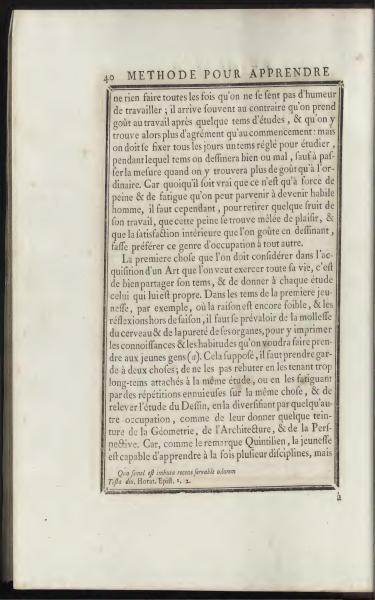 40 METHODE POUR APPRENDRE
ne rien faire toutes les fois qu'on ne se sent pas d'humeur
de travailler ; il arrive souvent au contraire qu'on prend
goût au travail après quelque tems d'études, & qu'on y
trouve alors plus d'agrément qu'au commencement : mais
on doit se fixer tous les jours un tems réglé pour étudier,
pendant lequel tems on dessinera bien ou mal, sauf à pas-
ser la mesure quand on y trouvera plus de goût qu'à l'or-
dinaire. Car quoiqu'il soit vrai que ce n'est qu'à force de
peine & de fatigue qu'on peut parvenir à devenir habile
homme, il faut cependant, pour retirer quelque fruit de
son travail, que cette peine se trouve mêlée de plaisir, &
que la satisfaction intérieure que l'on goûte en dessinant,
fasse préférer ce genre d'occupation à tout autre.
La premiere chose que l'on doit considérer dans l'ac-
quisition d'un Art que l'on veut exercer toute sa vie, c'est
de bien partager son tems, & de donner à chaque étude
celui qui lui est propre. Dans les tems de la premiere jeu-
nesse, par exemple, où la raison est encore foible, & les
réflexions hors de saison, il faut se prévaloir de la mollesse
du cerveau & de la pureté de ses organes, pour y imprimer
les connoissances & les habitudes qu'on voudra faire pren-
dre aux jeunes gens (a). Cela supposé, il faut prendre gar-
de à deux choses ; de ne les pas rebuter en les tenant trop
long-tems attachés à la même étude, ou en les fatiguant
par des répétitions ennuieuses sur la même chose, & de
relever l'étude du Dessin, en la diversifiant par quelqu'au-
tre occupation, comme de leur donner quelque tein-
ture de la Géometrie, de l'Architecture, & de la Pers-
pective. Car, comme le remarque Quinilien, la jeunesse
est capable d'apprendre à la fois plusieur disciplines, mais
Quo semel est imbuta recens servabit odorem
Testa diu. Horat. Epist. 1. 2.
à